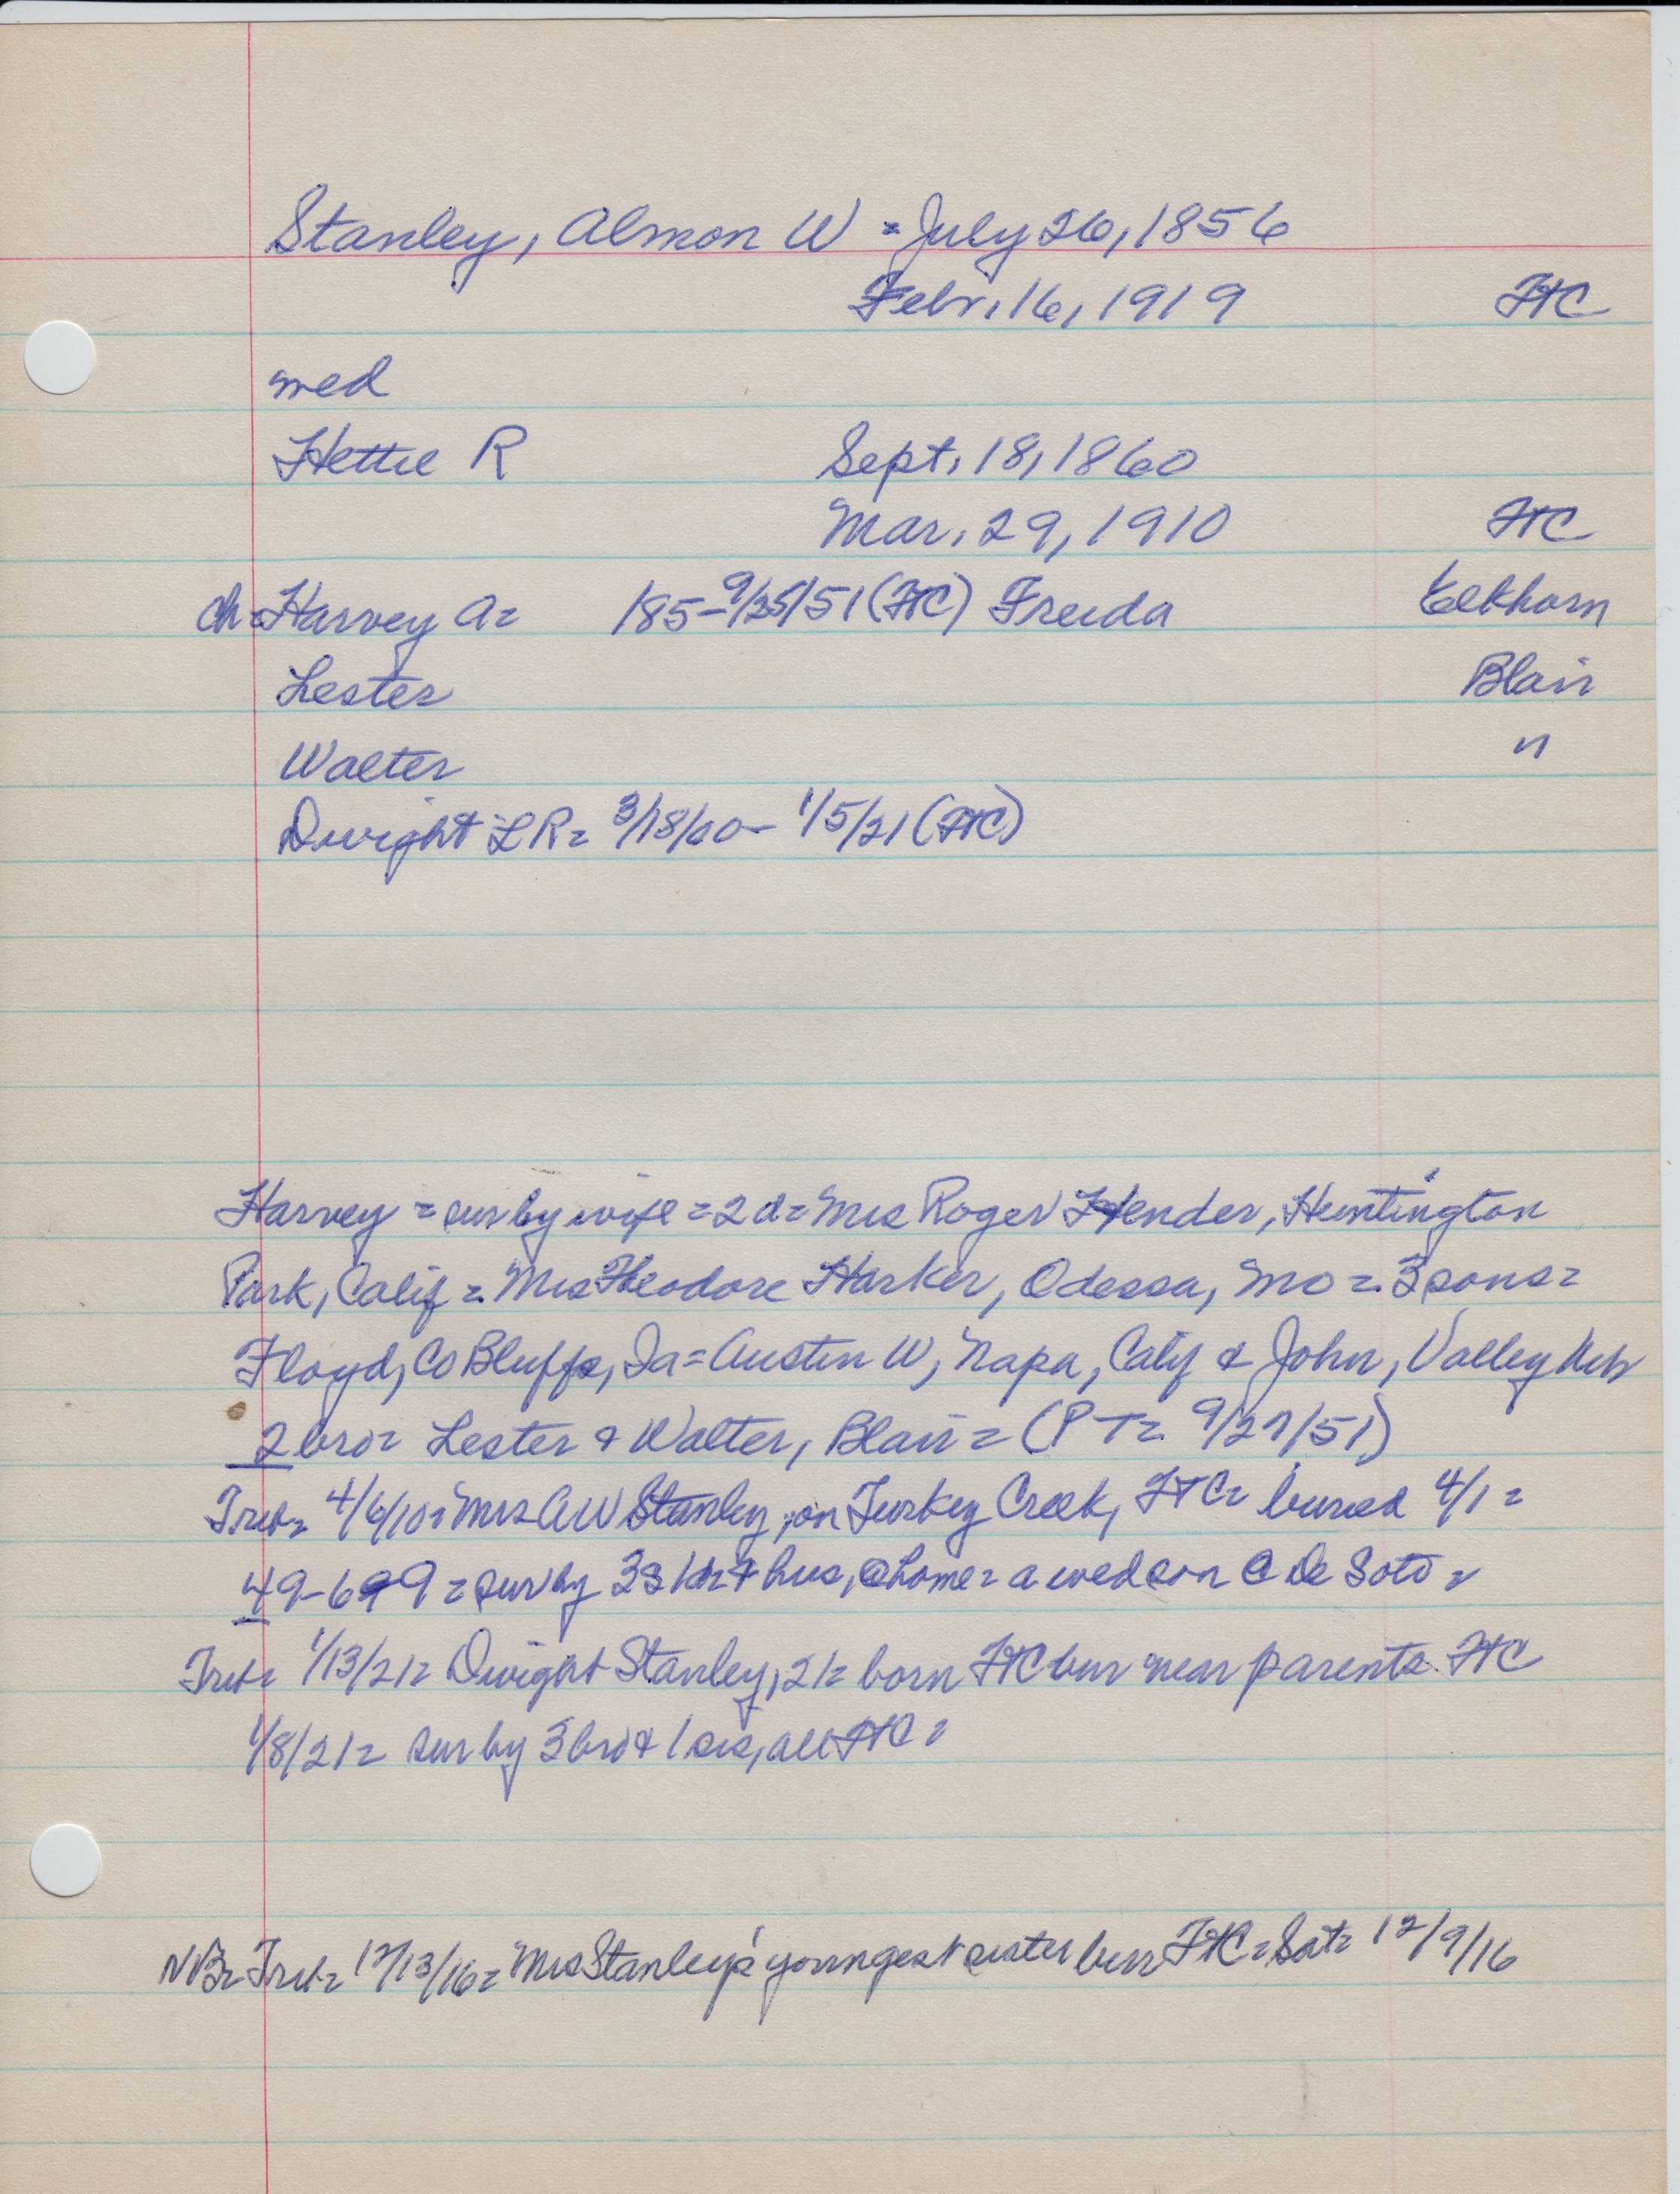 Stanley, Almon W = July 26, 1856
Febr. 16, 1919 FtC
med
Hettie R Sept. 18, 1860
Mar. 29, 1910 FtC
ch = Harvey A = 185- 9/25/51 (FtC) Freida Elkhorn
Lester Blair
Walter "
Dwight L R = 3/18/00 - 1/5/21 (FtC)
Harvey = sur by wife = 2 d = Mrs Roger Hender, Huntington
Park, Calif = Mrs Theodore Harker, Odessa, Mo = 3 sons =
Floyd, Co Bluffs, Ia = Austin W, Napa, Calif & John, Valley Neb
2 bro = Lester & Walter, Blair = (P T = 9/27/51)
Trib = 4/6/10 = Mrs A W Stanley, on Turkey Creek, FtC = buried 4/1 =
49-6-9 = sur by 3s 1d & hus, @ home = a wed son @ De Soto =
Trib = 1/13/21 = Dwight Stanley, 21 = born FtC bur near parents FtC
1/8/21 = sur by 3 bro & 1 sis, all FtC =
NB = Trib = 12/13/16 = Mrs Stanley's youngest sister bur FtC = Sat = 12/9/16